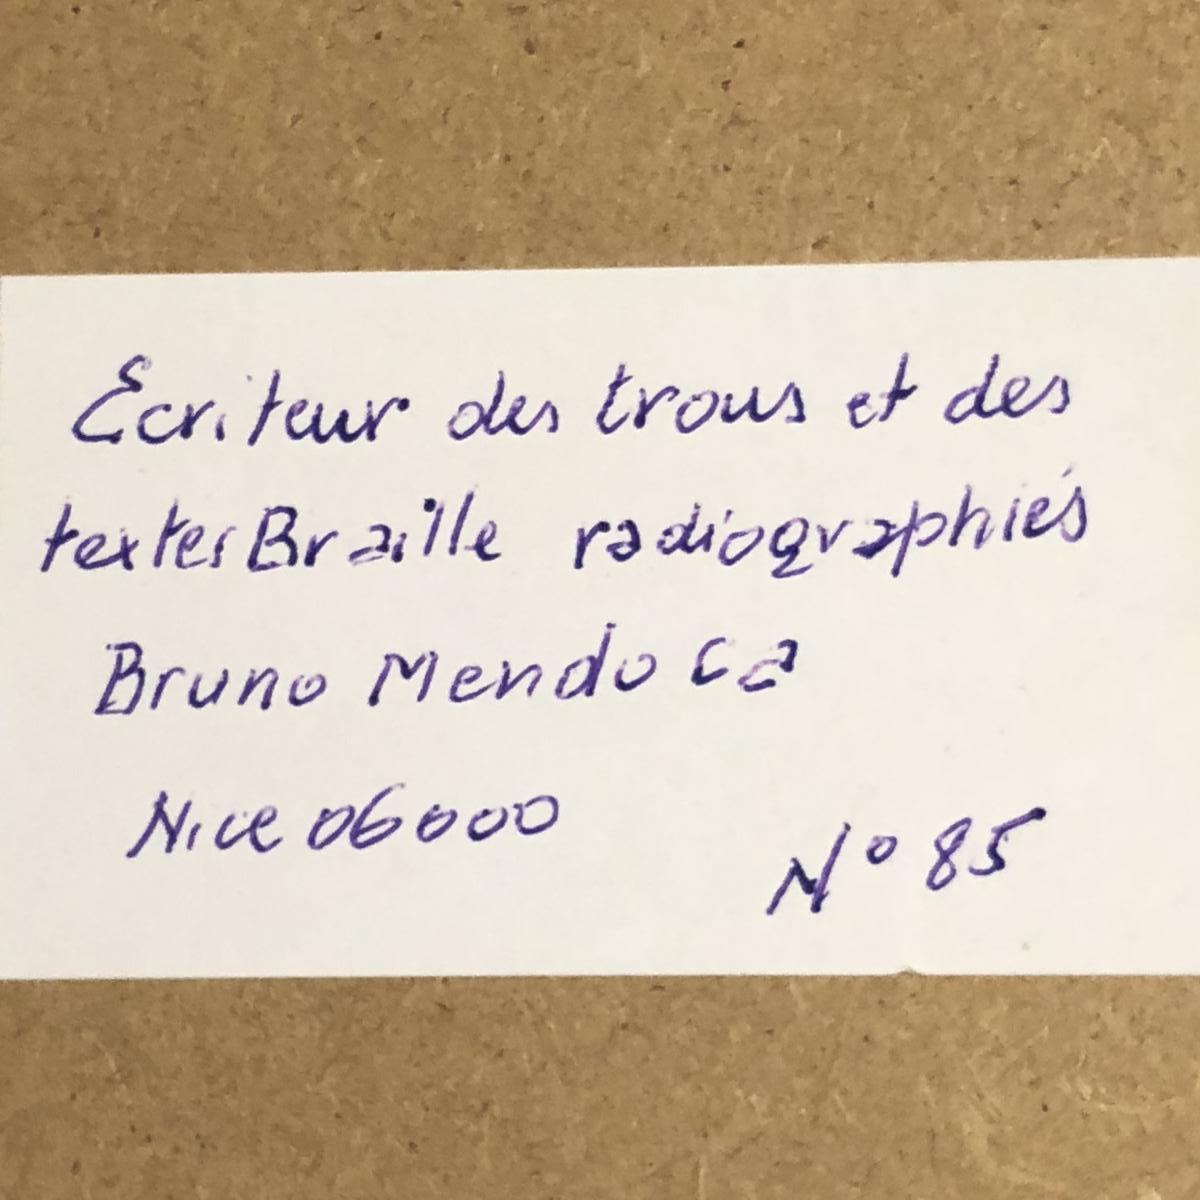 Ecriteur des trous et des
textes Braille radiographiés
Bruno Mendoca
Nice 06000
N° 85